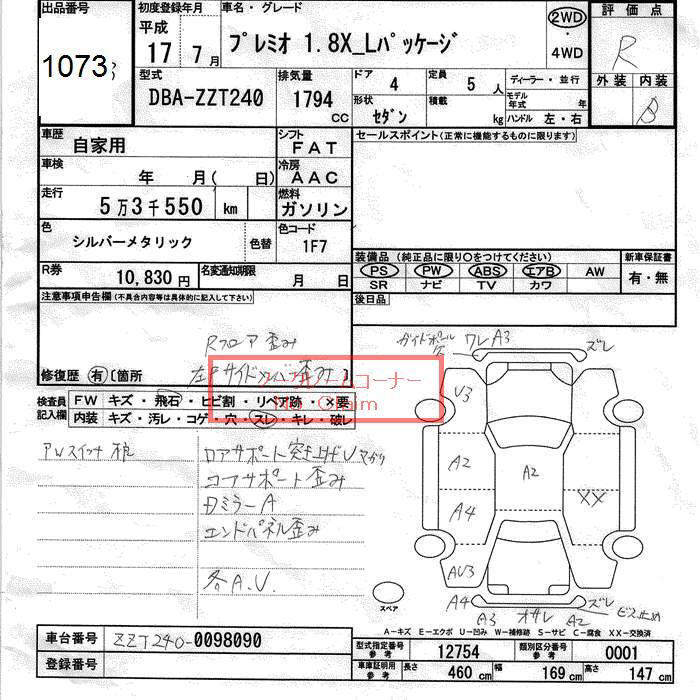 出品番号 初度登録年月 車名・グレード 2WD 評価点
1073 平成 17 7月 プレミオ 1.8X_Lパッケージ 4WD R
型式 排気量 ドア 4 定員 5 人 ディーラー・並行 外装 内装
DBA-ZZT240 1794 CC 形状 セダン 積載 kg モデル年式 年 ハンドル 左・右 B
車歴 自家用 シフト FAT セールスポイント(正常に機能するものに限ります)
車検 年 月( 日) 冷房 AAC
走行 5万3千550 km 燃料 ガソリン
色 シルバーメタリック 色替 色コード 1F7
装備品 (純正品に限り○をつけてください) 新車保証書
R券 10,830円 名変通知期限 月 日 PS PW ABS エアB AW 有・無
SR ナビ TV カワ
注意事項申告欄(不具合内容等は具体的に記入して下さい) 後日品
Rフロア歪み ガイドポールケ ワレA3 ズレ
修復歴 有 〔箇所 左Rサイドメンバー歪み 〕
ノークレームコーナー
No Claim
検査員記入欄 FW キズ・飛石・ヒビ割・リペア跡・×要
内装 キズ・汚レ・コゲ・穴・スレ・キレ・破レ
V3
PWスイッチ ロアサポート突き上げU マガリ
コアサポート歪み A2 A2
ミラーA A4 XX
エンドパネル歪み
各A.U. AU3
スペア A4 ズレ
A3 オサレ A2 ビス止め
A-キズ E-エクボ U-凹み W-補修跡 S-サビ C-腐食 XX-交換済
車台番号 ZZT240-0098090 型式指定番号 参考 12754 類別区分番号 参考 0001
登録番号 車庫証明用 参考 長さ 460 cm 幅 169 cm 高さ 147 cm